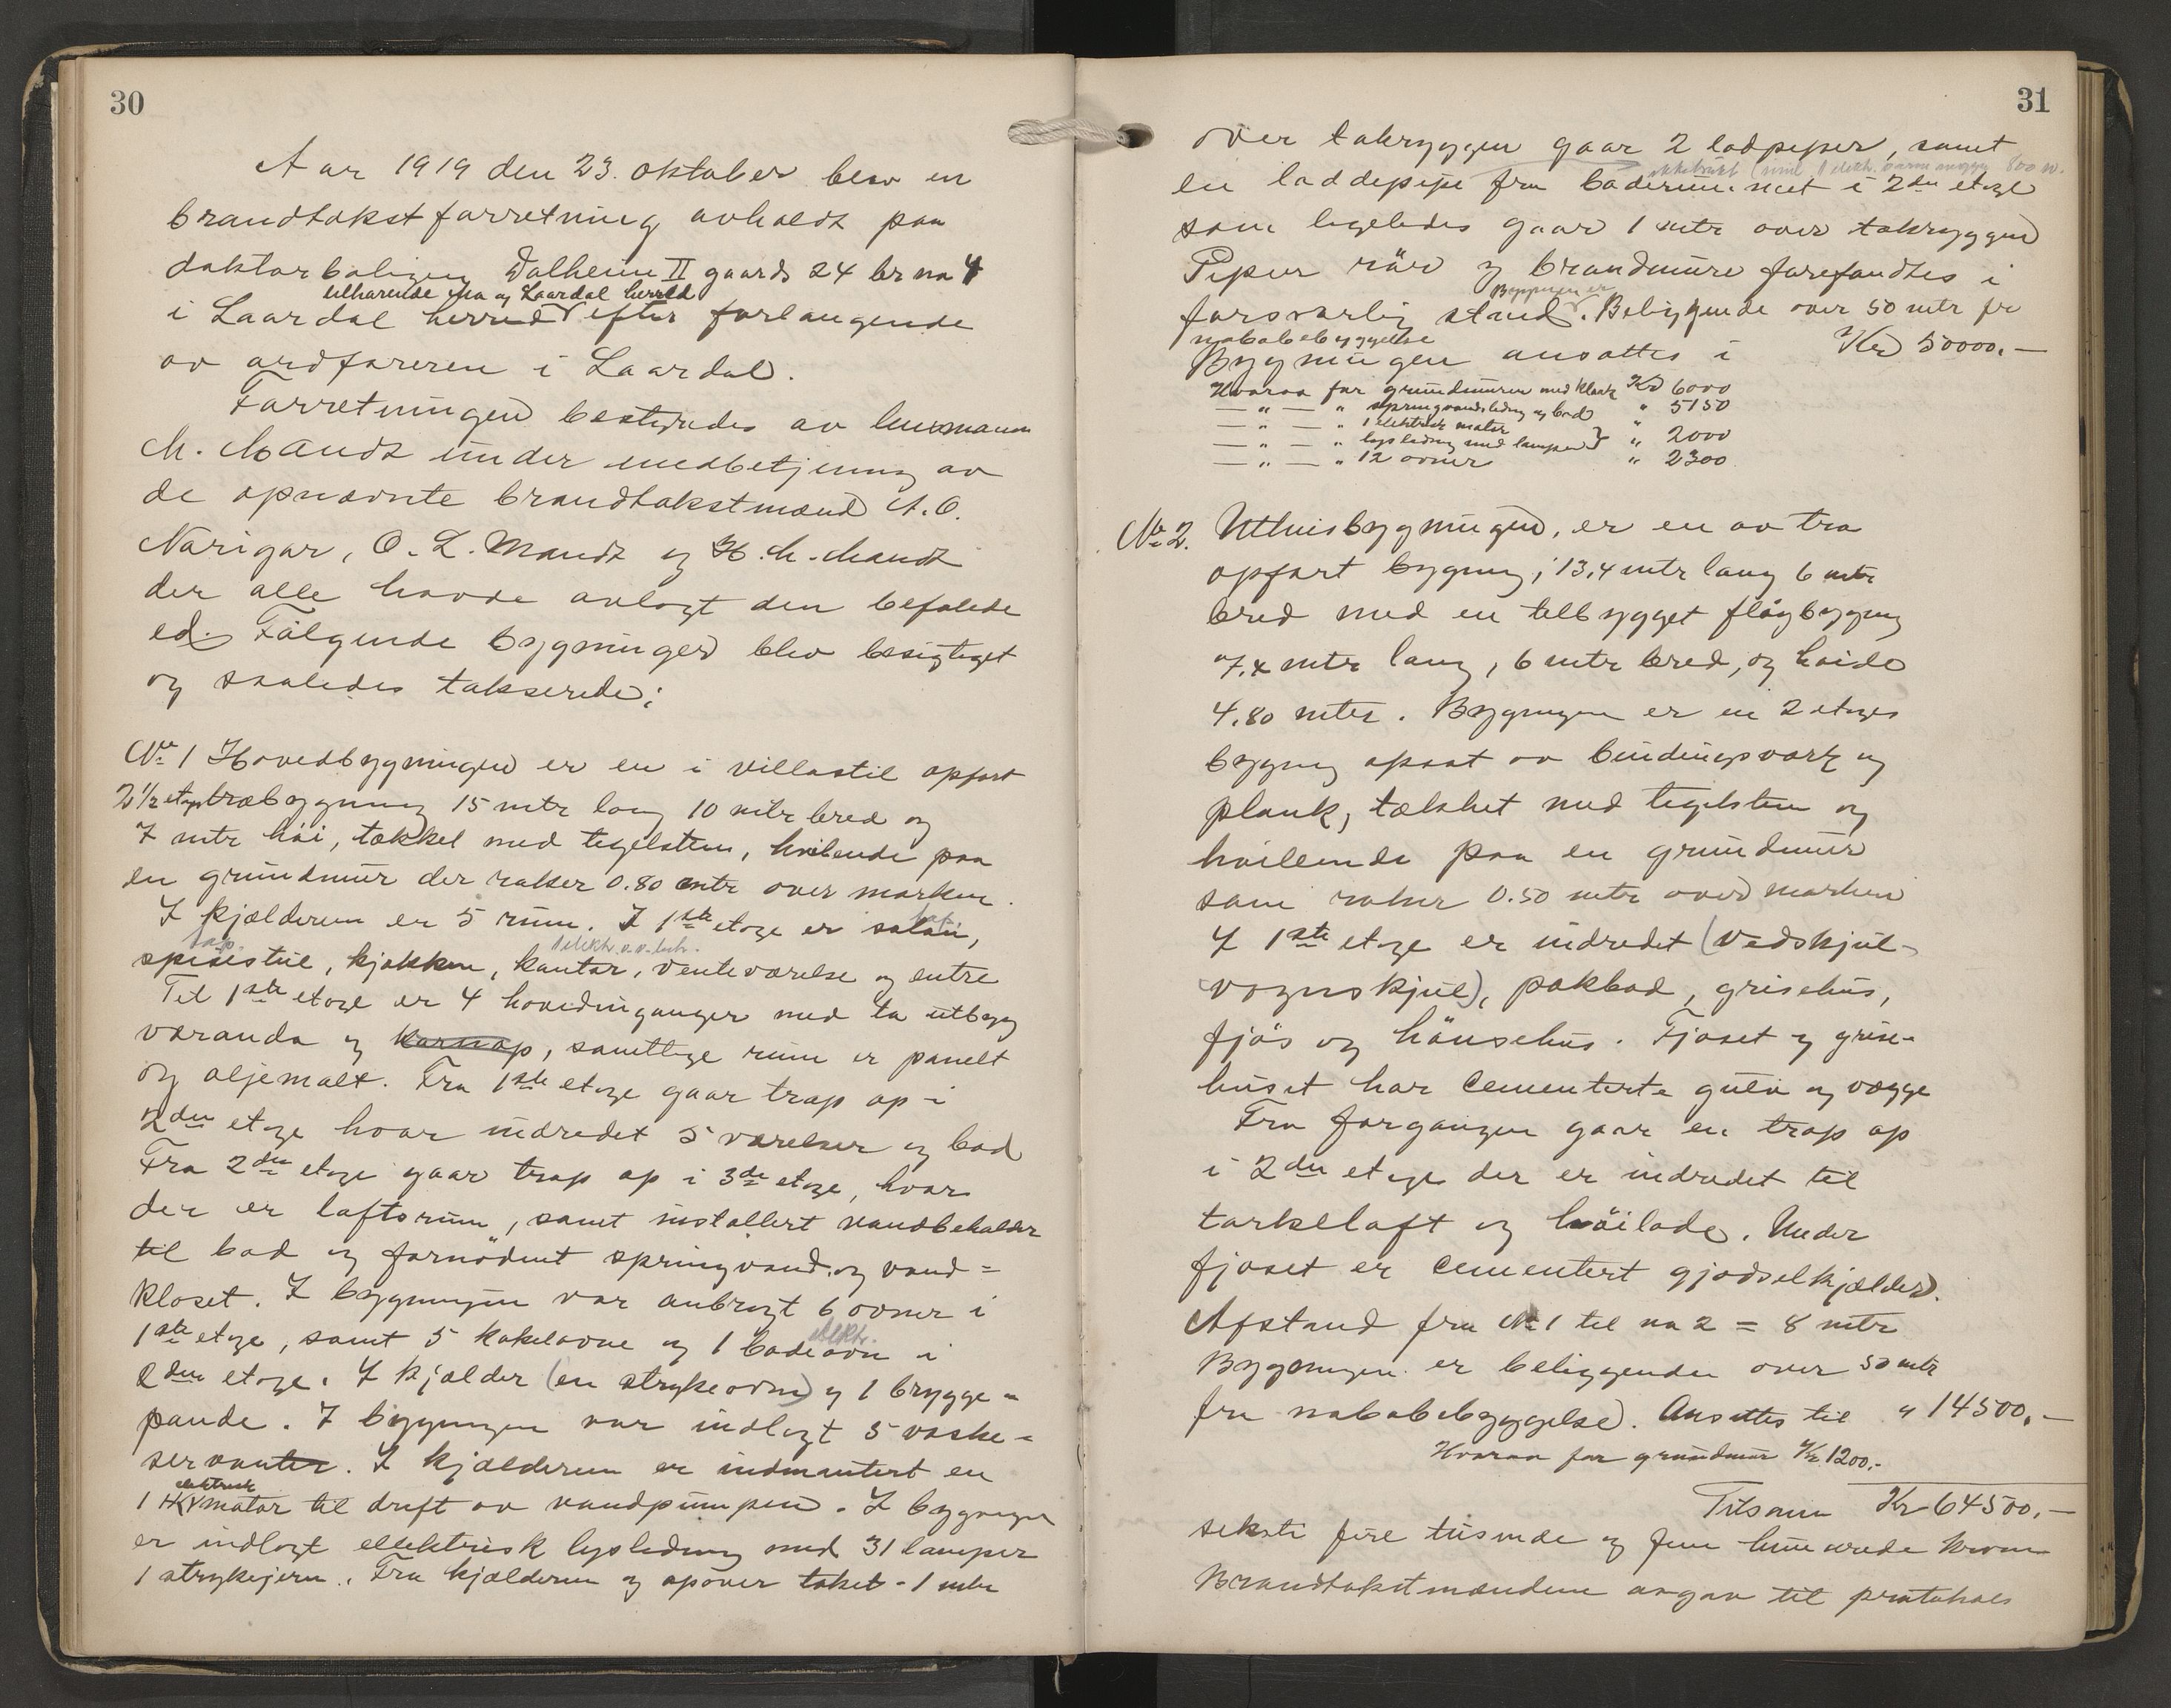 30
Aar 1919 den 23. oktober blev en
brandtakstforretning avholdt paa
doktorboligen Dalheim II gaards 24 br no 4
tilhørende Mo og Laardal herred
i Laardal herred efter forlangende
av ordføreren i Laardal.
Forretningen bestyredes av lensmann
M. Mandt under medbetjening av
de opnævnte brandtakstmænd A. O.
Narigar, O. L. Mandt og H. M. Mandt
der alle havde avlagt den befalede
ed. Følgende bygninger blev besigtiget
og saaledes takserede:
No 1 Hovedbygningen er en i villastil opført
2 1/2 etages træbygning 15 mtr lang 10 mtr bred og
7 mtr høi, tækket med tegelsten, hvilende paa
en grundmur der rækker 0.80 mtr over marken.
I kjælderen er 5 rum. I 1ste etage er salon,
spisestue, kjøkken, kontor, venteværelse og entre
Til 1ste etage er 4 hovedinganger med to utbygg
veranda og karnap, samtlige rum er panelt
og oljemalt. Fra 1ste etage gaar trap op i
2den etage hvor indredet 5 værelser og bad
Fra 2den etage gaar trap op i 3de etage, hvor
der er loftsrum, samt installert vandbeholder
til bad og fornødent springvand og vand=
kloset. I bygningen var anbragt 6 ovner i
elektr.
1ste etage, samt 5 kakelovne og 1 badeovn i
2den etage. I kjælder (en strykeovn) og 1 brygge=
pande. I bygningen var indlagt 5 vaske=
servanter. I kjælderen er indmontert en
elektrisk
1 HK motor til drift av vandpumpen. I bygningen
er indlagt ellektrisk lysledning med 31 lamper
1 strykejern. Fra kjælderen og opover taket - 1 mtr
31
over takryggen gaar 2 lodpiper, samt
en loddepipe fra baderummet i 2den etage
som ligeledes gaar 1 mtr over takryggen
Piper rør og brandmure forefandtes i
forsvarlig stand. Beliggende over 50 mtr fr
nabobebyggelse
Bygningen ansattes i Kr 50000.—
Hvorav for grundmuren med kloak Kr 6000
— " — " springvandsledning og bad " 5150
— " — " 1 elektrisk motor "
— " — " lysledning med lamper } " 2000
— " — " 12 ovner " 2300
No 2. Uthusbygningen, er en av træ
opført bygning, 13,4 mtr lang 6 mtr
bred med en tilbygget fløybygning
7.4 mtr lang, 6 mtr bred, og høide
4.80 mter. Bygningen er en 2 etages
bygning opsat av bindingsværk og
plank, tækket med tegelsten og
hvilende paa en grundmur
som rækker 0.50 mtr over marken
I 1ste etage er indredet (vedskjul-
vognskjul), pakbod, grisehus,
fjøs og hönsehus. Fjøset og grise-
huset har cementerte gulv og vægge
Fra forgangen gaar en trap op
i 2den etage der er indredet til
tørkeloft og høilade. Under
fjøset er cementert gjødselkjælder.
Afstand fra No 1 til no 2 = 8 mtr
Bygningen er beliggende over 50 mtr
fra nabobebyggelse. Ansattes til " 14500.—
Hvorav for grundmur Kr. 1200.-
Tilsamm Kr 64500.—
seksti fire tusinde og fem hundrede kroner
Brandtakstmændene avgav til protokols